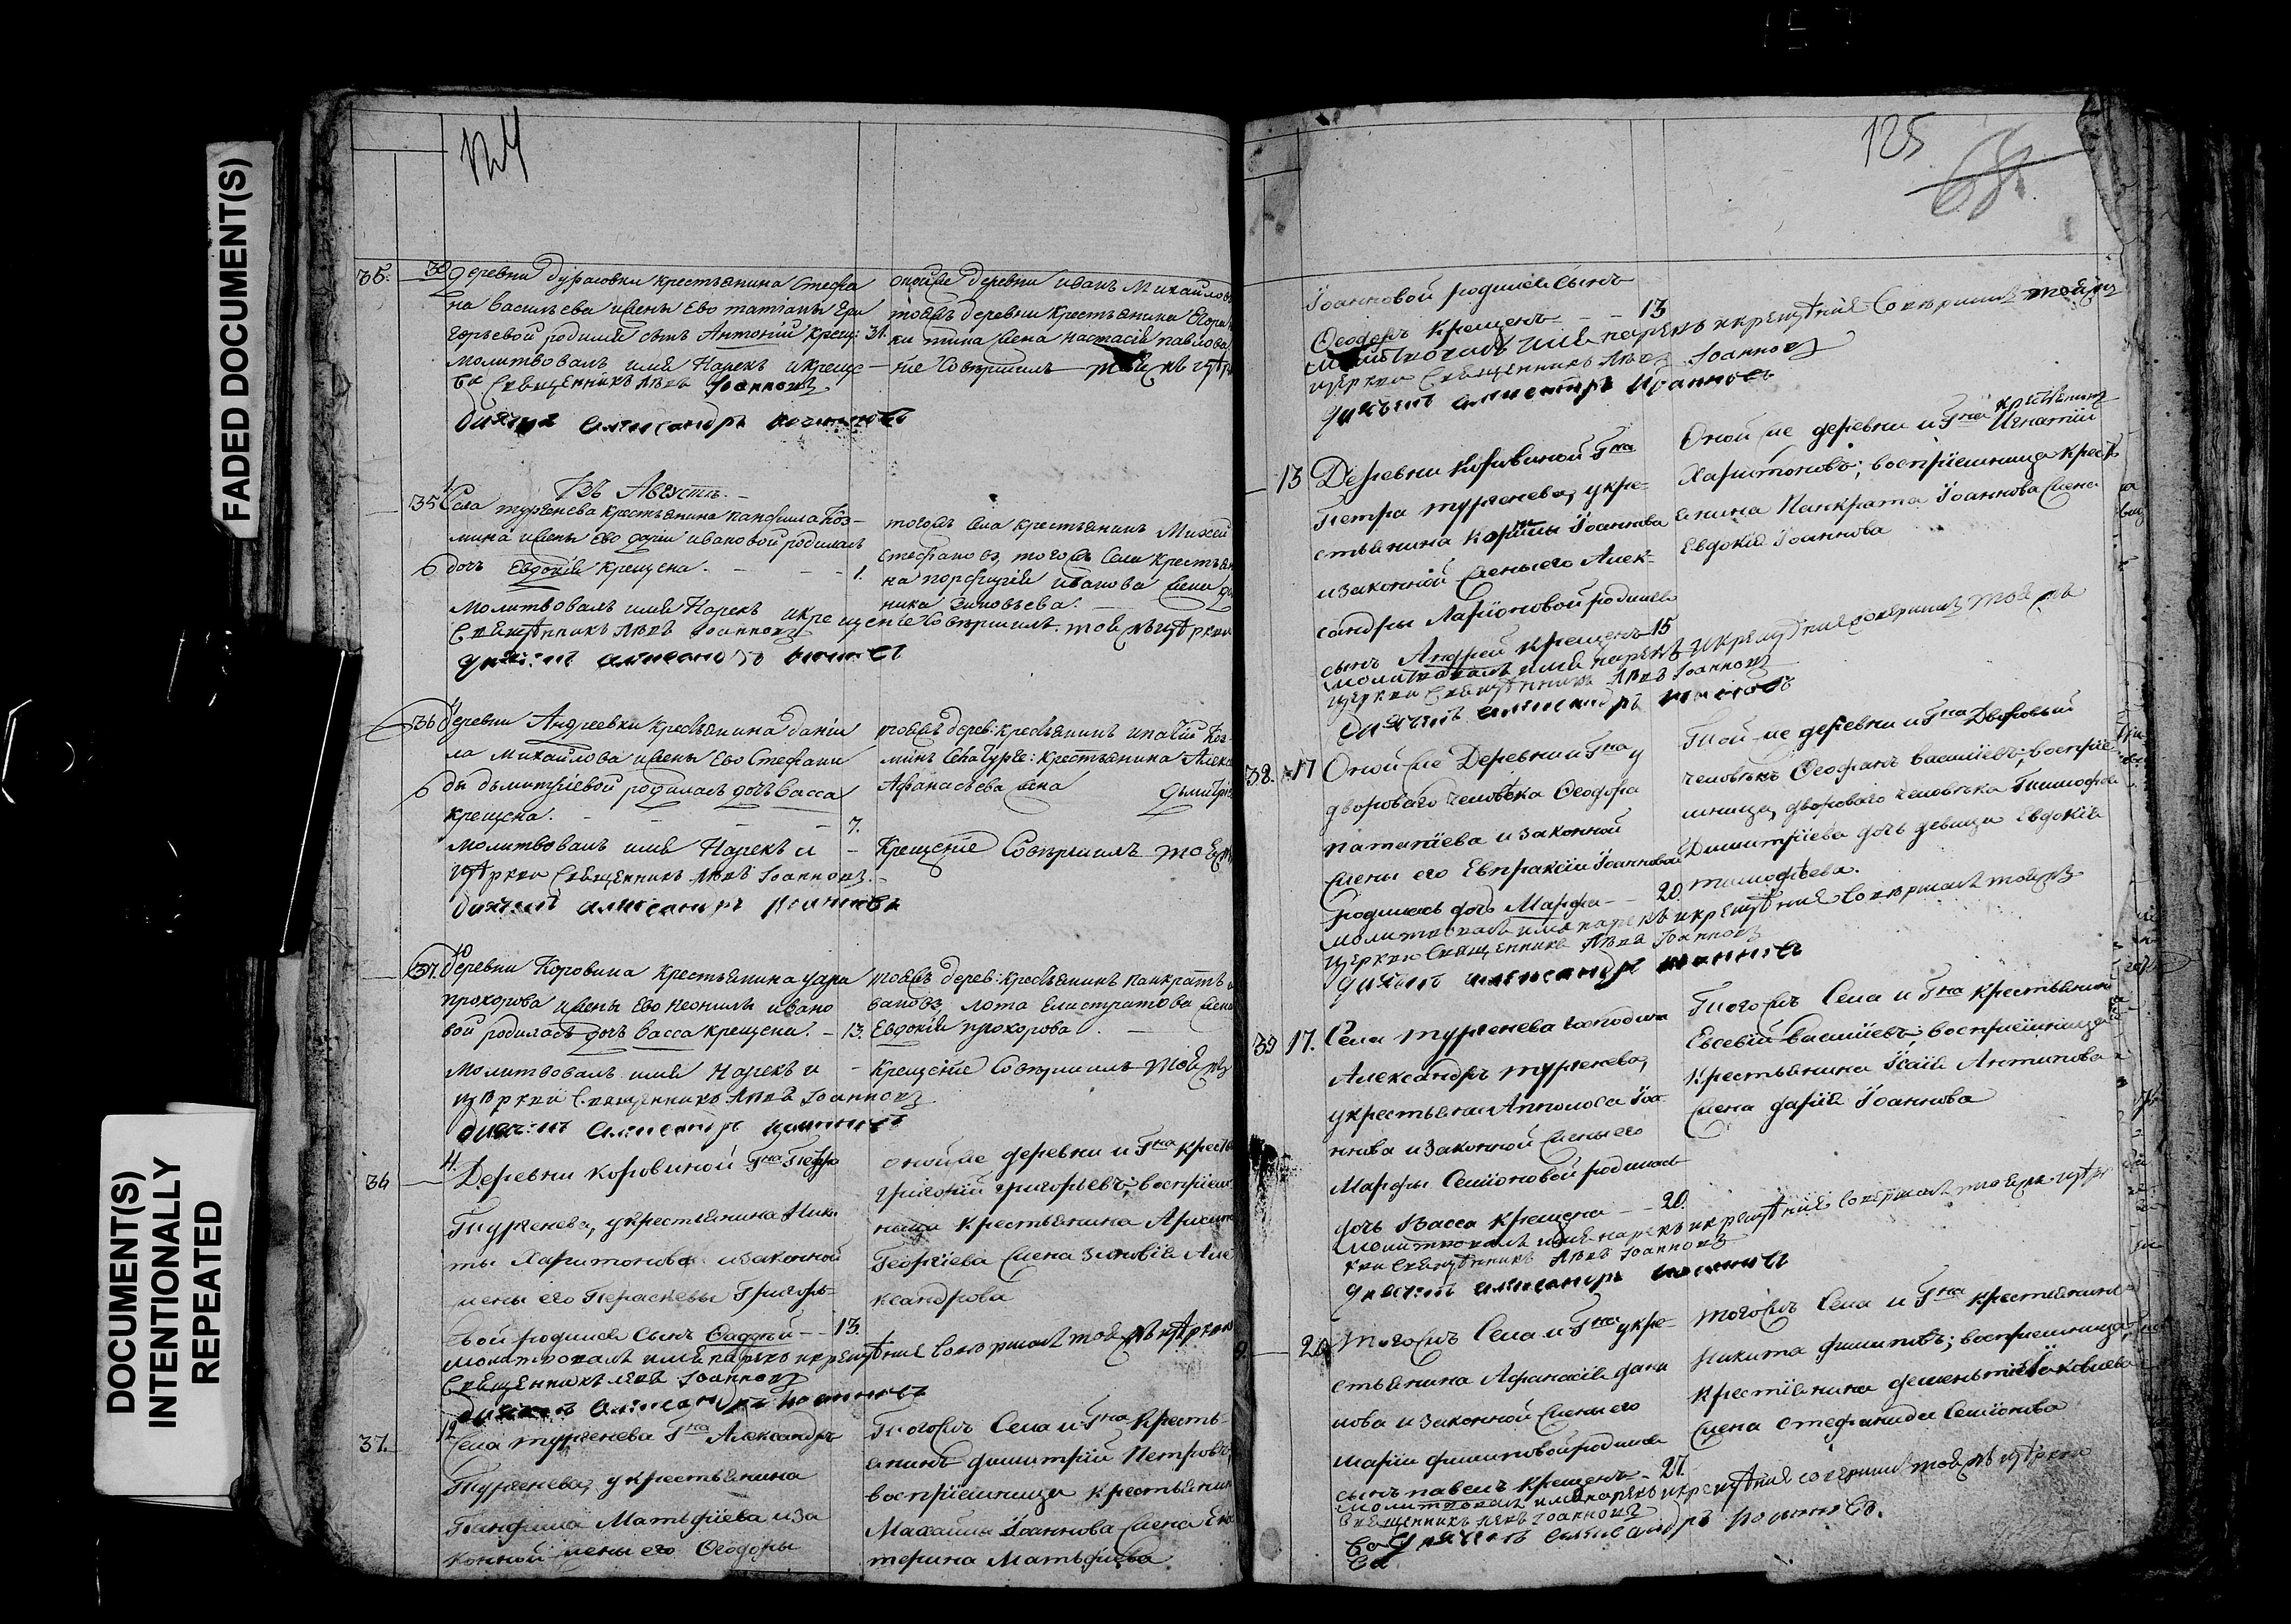 FADED DOCUMENT(S)
DOCUMENT(S)
INTENTIONALLY
REPEATED
124
35. 30 Деревни Дурасовки крестьянина Стефа
на Васильева и жены Ево татианы Гри
горьевой родился сынъ Антоний крещ: 31.
молитвовалъ имя Нарекъ и креще-
Священникъ Левъ Iоанновъ
дьячекъ Александръ
оной же деревни иванъ Михайловъ
тояжъ деревни крестьянина Егора
жена настасия павлова
ние Совершилъ той же
Въ Августе.
35 1 Села тургенева крестьянина панфила Коз-
мина и жены Ево дарии ивановой родилась
6 дочь Евдокия крещена. - - - 1.
молитвовалъ имя Нарекъ и крещение Совершилъ тояжъ церкви
Священникъ Левъ Iоанновъ
дьячекъ Александръ
тогожъ Села крестьянинъ Михей
Стефановъ, тогожъ Села крестьян
на порфирия иванова жена
ника Зиновьева.
36 Деревни Андреевки крестьянина дании
ла михайлова и жены Ево Стефани
6 ды дьмитриевой родилась дочь васса
крещена. - - - 7.
молитвовалъ имя Нарекъ и
церкви Священникъ Левъ Iоанновъ.
дьячекъ Александръ
тояжъ дерев: крестьянинъ ипатий Коз-
минъ крестьянина Алекс
Афанасьева жена дьмитри
Крещение Совершилъ
37. 10 деревни Коровина крестьянина
прохорова и жены Ево неонилы ивано
вой родилась дочь васса крещена. - 13.
молитвовалъ имя Нарекъ и
церкви Священникъ Левъ Iоанновъ
дьячекъ Александръ
тояжъ дерев: крестьянинъ панкратъ и
вановъ, Елистратова жена
Евдокия прохорова.
Крещение Совершилъ той же
36 11. Деревни коровиной Гна Петра
Тургенева, у крестьянина Ники
ты Харитонова и законной
жены его Перасковьи Григорь-
евой родился сынъ Фаддей - - 13.
молитвовалъ имя нарекъ и крещение совершилъ той же церкви
Священникъ Левъ Iоанновъ
дьячекъ Александръ Iоанновъ
оной же деревни и Гна крест
григорий григорьевъ; восприем
ница крестьянина
Георгиева жена зиновия Але
ксандрова
37. 12 Села тургенева Гна Александра
Тургенева, у крестьянина
Панфила Матьфиева и за
конной жены его Феодоры
Тогожъ Села и Гна кресть-
янинъ димитрий Петровъ;
восприемница крестьянин
Михаила Iоаннова жена Ека
терина Матьфиева
125
Iоанновой родился сынъ
Феодоръ крещенъ - - 13
молитвовалъ имя нарекъ и крещение совершилъ той же
церкви Священникъ Левъ Iоанновъ
дьячекъ Александръ Iоанновъ
13 Деревни Коровиной Гна
Петра тургенева, у кре-
стьянина Iоаннова
и законной жены его Алек-
сандры Ларионовой родился
сынъ Андрей крещенъ 15
молитвовалъ имя нарекъ и крещение совершилъ той же
церкви Священникъ Левъ Iоанновъ
дьячекъ Александръ
Оной же деревни и Гна крестьянинъ Игнатий
Харитоновъ; восприемница крест
янина Панкрата Iоаннова жена
Евдокия Iоаннова
38. 17 Оной же Деревни и Гна у
дворовагo человека Феодора
патапиева и законной
жены его Евпраксии Iоанновой
родилась дочь Марфа - - 20
молитвовалъ имя нарекъ и крещение совершилъ той же
церкви Священникъ Левъ Iоанновъ
дьячекъ Александръ
Той же деревни и Гна Дворовый
человекъ Феофанъ васильевъ; восприе-
мница, дворового человека Тимофея
Димитриева дочь девица Евдокия
тимофеева.
39 17. Села тургенева господина
Александръ тургенева,
у крестьянина Апполоса Iоа-
ннова и законной жены его
Марфы Семионовой родилась
дочь Васса крещена - - 20.
молитвовалъ имя нарекъ и крещение совершилъ тояжъ церк
ви Священникъ Левъ Iоанновъ
дьячекъ Александръ
Тогожъ Села и Гна крестьянинъ
Евсевий васильевъ; восприемница
крестьянина Исаия Антипова
жена дария Iоаннова
20 тогожъ Села и Гна у кре-
стьянина Афанасия дани
лова и законной жены его
марии филиповой родился
сынъ павелъ крещенъ - 21.
молитвовалъ имя нарекъ и крещение совершилъ тояжъ церкви
Священникъ Левъ Iоанновъ
дьячекъ Александръ Iоанновъ.
тогожъ Села и Гна крестьянинъ
Никита филиповъ; восприемница
крестьянина деменьтия Iаковлева
жена стефанида Семионова